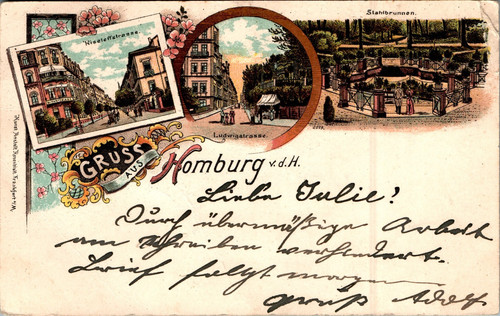 Kisseleffstrasse.
Stahlbrunnen.
Ludwigstrasse.
GRUSS
AUS
Homburg v.d.H.
Liebe Julie!
Durch übermäßige Arbeit
am Schreiben verhindert.
Brief folgt morgen
gruß Adolf